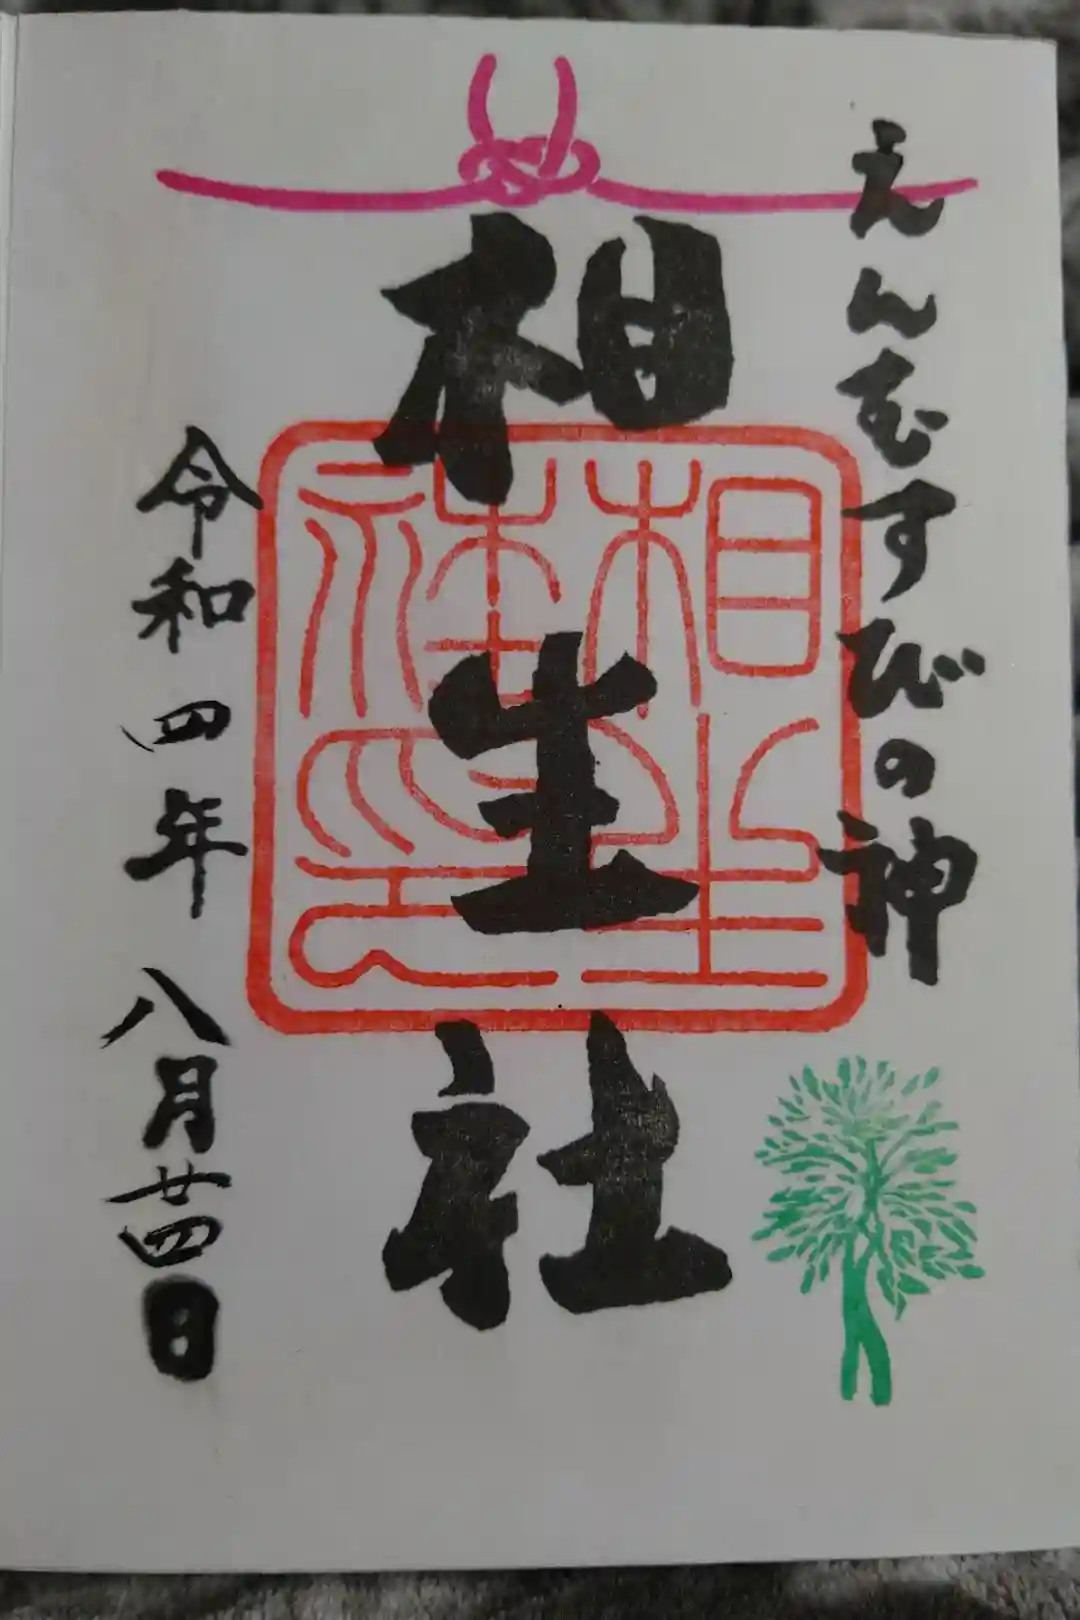 えんむすびの神
相生社
相生社神璽
令和四年八月廿四日